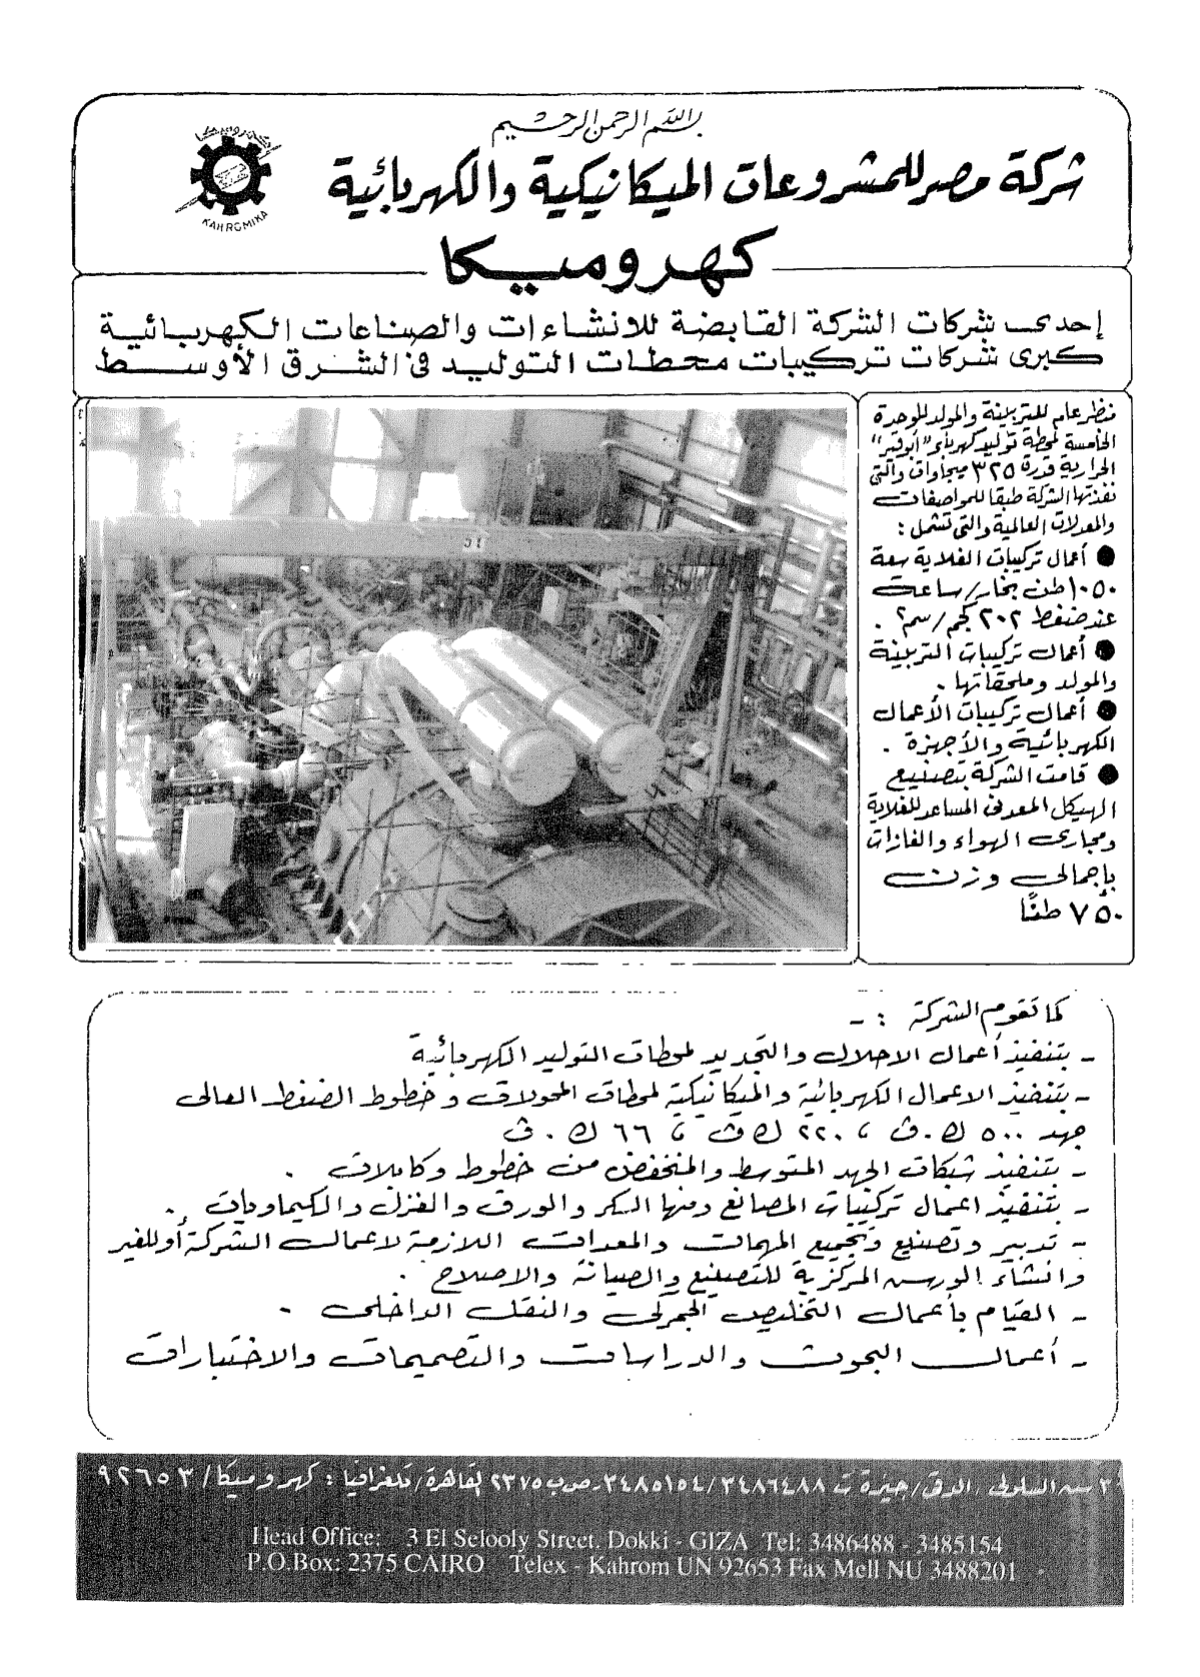 بسم الله الرحمن الرحيم
كهروميكا
KAHROMIKA
شركة مصر للمشروعات الميكانيكية والكهربائية
كهروميكا
إحدى شركات الشركة القابضة للانشاءات والصناعات الكهربائية
كبرى شركات تركيبات محطات التوليد فى الشرق الأوسط
منظر عام للتربينة والمولد للوحدة
الخامسة لمحطة توليد كهرباء "أبوقير"
الحرارية قدرة ٣٢٥ ميجاوات والتى
نفذتها الشركة طبقا للمواصفات
والمعدلات العالمية والتى تشمل :
● أعمال تركيبات الغلاية سعة
١٠٥٠ طن بخار/ساعة
عند ضغط ٢٠٢ كجم/سم٢ .
● أعمال تركيبات التربينة
والمولد وملحقاتها .
● أعمال تركيبات الأعمال
الكهربائية والأجهزة .
● قامت الشركة بتصنيع
الهيكل المعدنى المساعد للغلاية
ومجارى الهواء والغازات
بإجمالى وزن
٧٥٠ طنًا
كما تقوم الشركة : -
- بتنفيذ أعمال الاحلال والتجديد لمحطات التوليد الكهربائية
- بتنفيذ الاعمال الكهربائية والميكانيكية لمحطات المحولات وخطوط الضغط العالى
جهد ٥٠٠ ك.ف ، ٢٢٠ ك ف ، ٦٦ ك.ف
- بتنفيذ شبكات الجهد المتوسط والمنخفض من خطوط وكابلات .
- بتنفيذ اعمال تركيبات المصانع ومنها السكر والورق والغزل والكيماويات .
- تدبير وتصنيع وتجميع المهمات والمعدات اللازمة لاعمال الشركة أو للغير
وانشاء الورس المركزية للتصنيع والصيانة والاصلاح .
- القيام بأعمال التخليص الجمركى والنقل الداخلى .
- أعمال البحوث والدراسات والتصميمات والاختبارات
٣ ش السلولى / الدقى / جيزة ت ٣٤٨٦٤٨٨ / ٣٤٨٥١٥٤ - ص ب ٢٣٧٥ القاهرة / تلغرافيا : كهروميكا / ٩٢٦٥٣
Head Office: 3 El Selooly Street. Dokki - GIZA Tel: 3486488 - 3485154
P.O.Box: 2375 CAIRO Telex - Kahrom UN 92653 Fax Mell NU 3488201